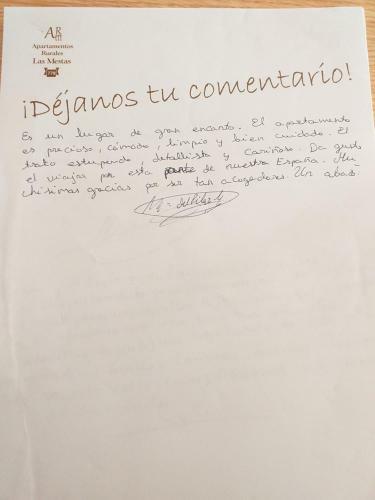 ARM
Apartamentos
Rurales
Las Mestas
¡Déjanos tu comentario!
Es un lugar de gran encanto. El apartamento
es precioso, cómodo, limpio y bien cuidado. El
trato estupendo, detallista y cariñoso. Da gusto
el viajar por esta parte de nuestra España. Mu-
chísimas gracias por ser tan acogedores. Un abazo.
Mª del Pilar